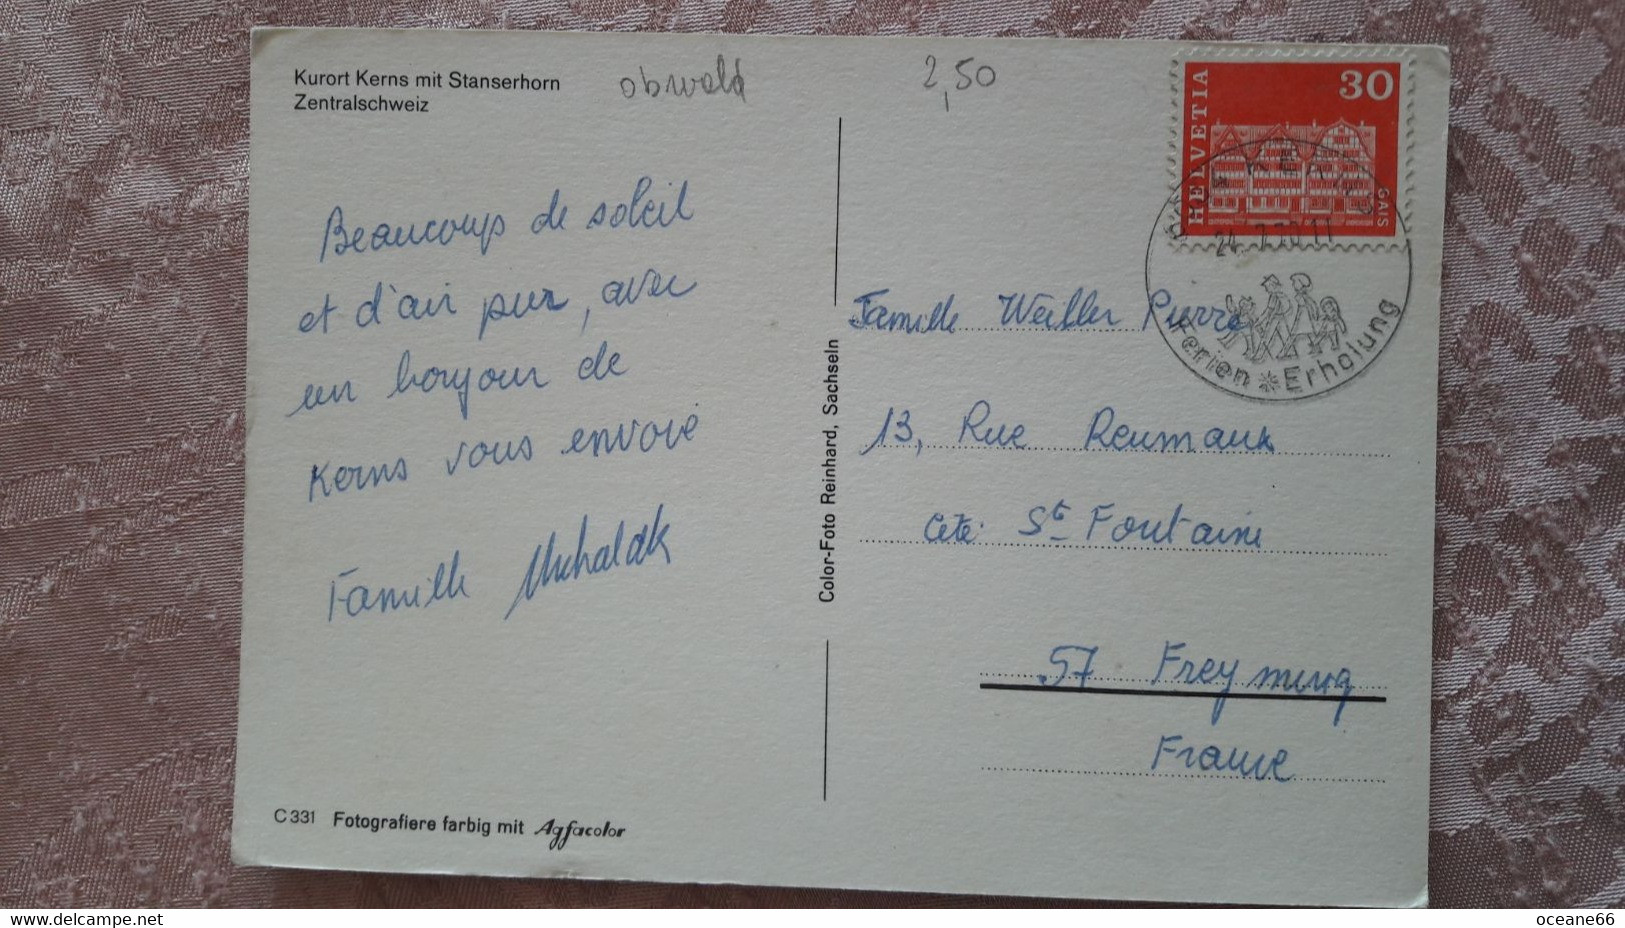 Kurort Kerns mit Stanserhorn
Zentralschweiz
obwald
2,50
HELVETIA
30
GAIS
24. 7.70.11
Ferien * Erholung
Beaucoup de soleil
et d'air pur, avec
un bonjour de
Kerns vous envoie
Famille Michalak
Color-Foto Reinhard, Sachseln
Famille Pierre
13, Rue Reumaux
Cité Ste Fontaine
57 Freyming
France
C 331 Fotografiere farbig mit Agfacolor
oceane66